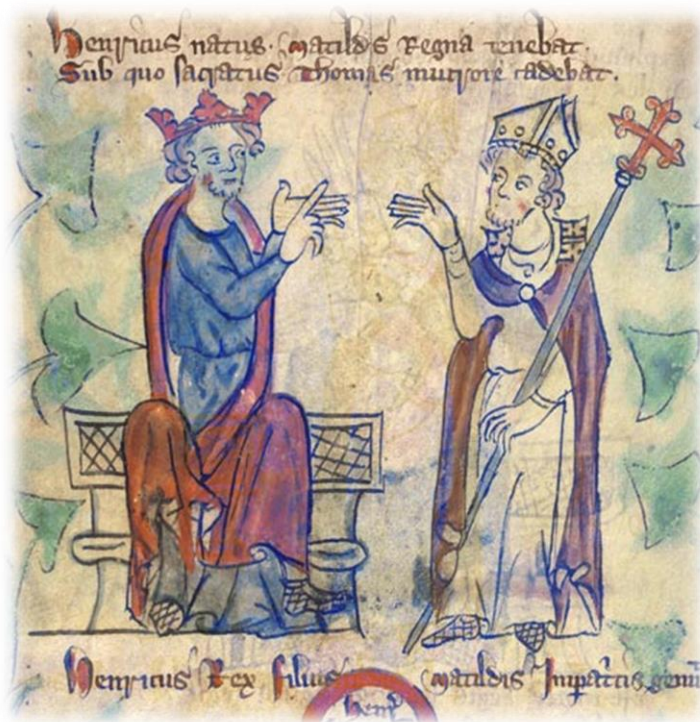 Henricus natus Matildis Regna tenebat.
Sub quo sacratus Thomas mucrone cadebat.
Henricus Rex filius Matildis Imperatricis genui
Henr